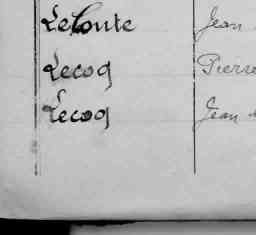 LeConte Jean
Lecoq Pierre
Lecoq Jean